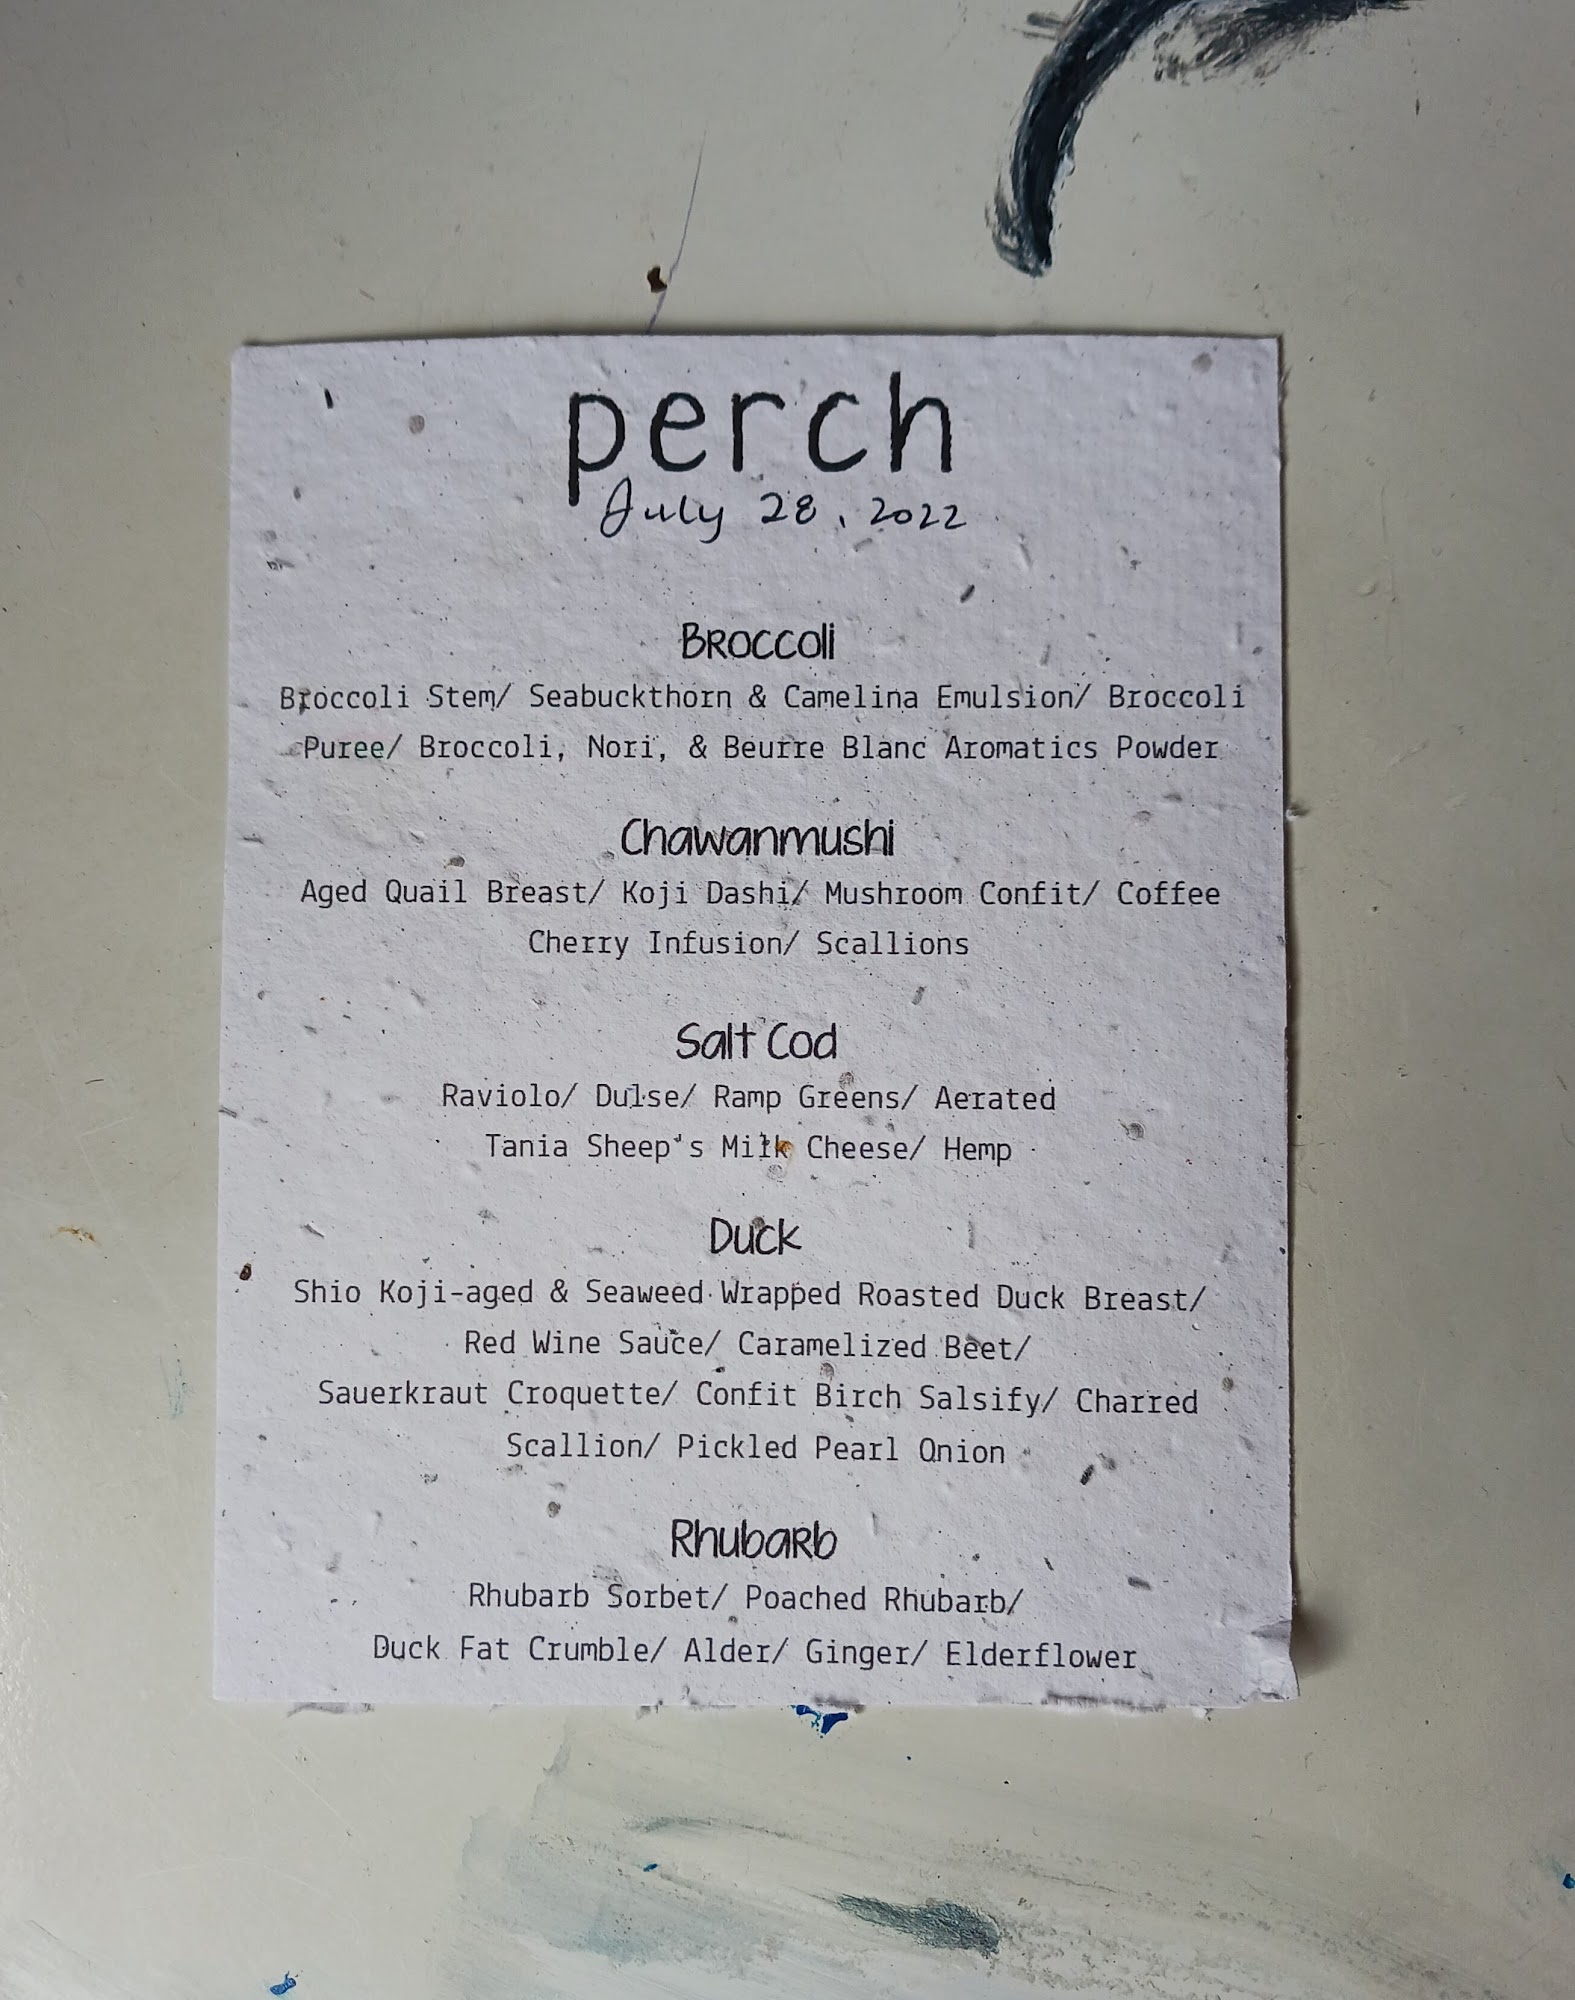 perch
July 28, 2022
Broccoli
Broccoli Stem/ Seabuckthorn & Camelina Emulsion/ Broccoli
Puree/ Broccoli, Nori, & Beurre Blanc Aromatics Powder
Chawanmushi
Aged Quail Breast/ Koji Dashi/ Mushroom Confit/ Coffee
Cherry Infusion/ Scallions
Salt Cod
Raviolo/ Dulse/ Ramp Greens/ Aerated
Tania Sheep's Milk Cheese/ Hemp
Duck
Shio Koji-aged & Seaweed Wrapped Roasted Duck Breast/
Red Wine Sauce/ Caramelized Beet/
Sauerkraut Croquette/ Confit Birch Salsify/ Charred
Scallion/ Pickled Pearl Onion
Rhubarb
Rhubarb Sorbet/ Poached Rhubarb/
Duck Fat Crumble/ Alder/ Ginger/ Elderflower